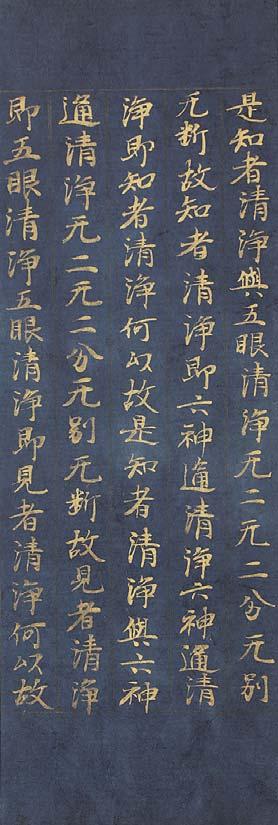 是知者清淨與五眼清淨无二无二分无別
无断故知者清淨即六神通清淨六神通清
淨即知者清淨何以故是知者清淨與六神
通清淨无二无二分无别无断故見者清淨
即五眼清淨五眼清淨即見者清淨何以故